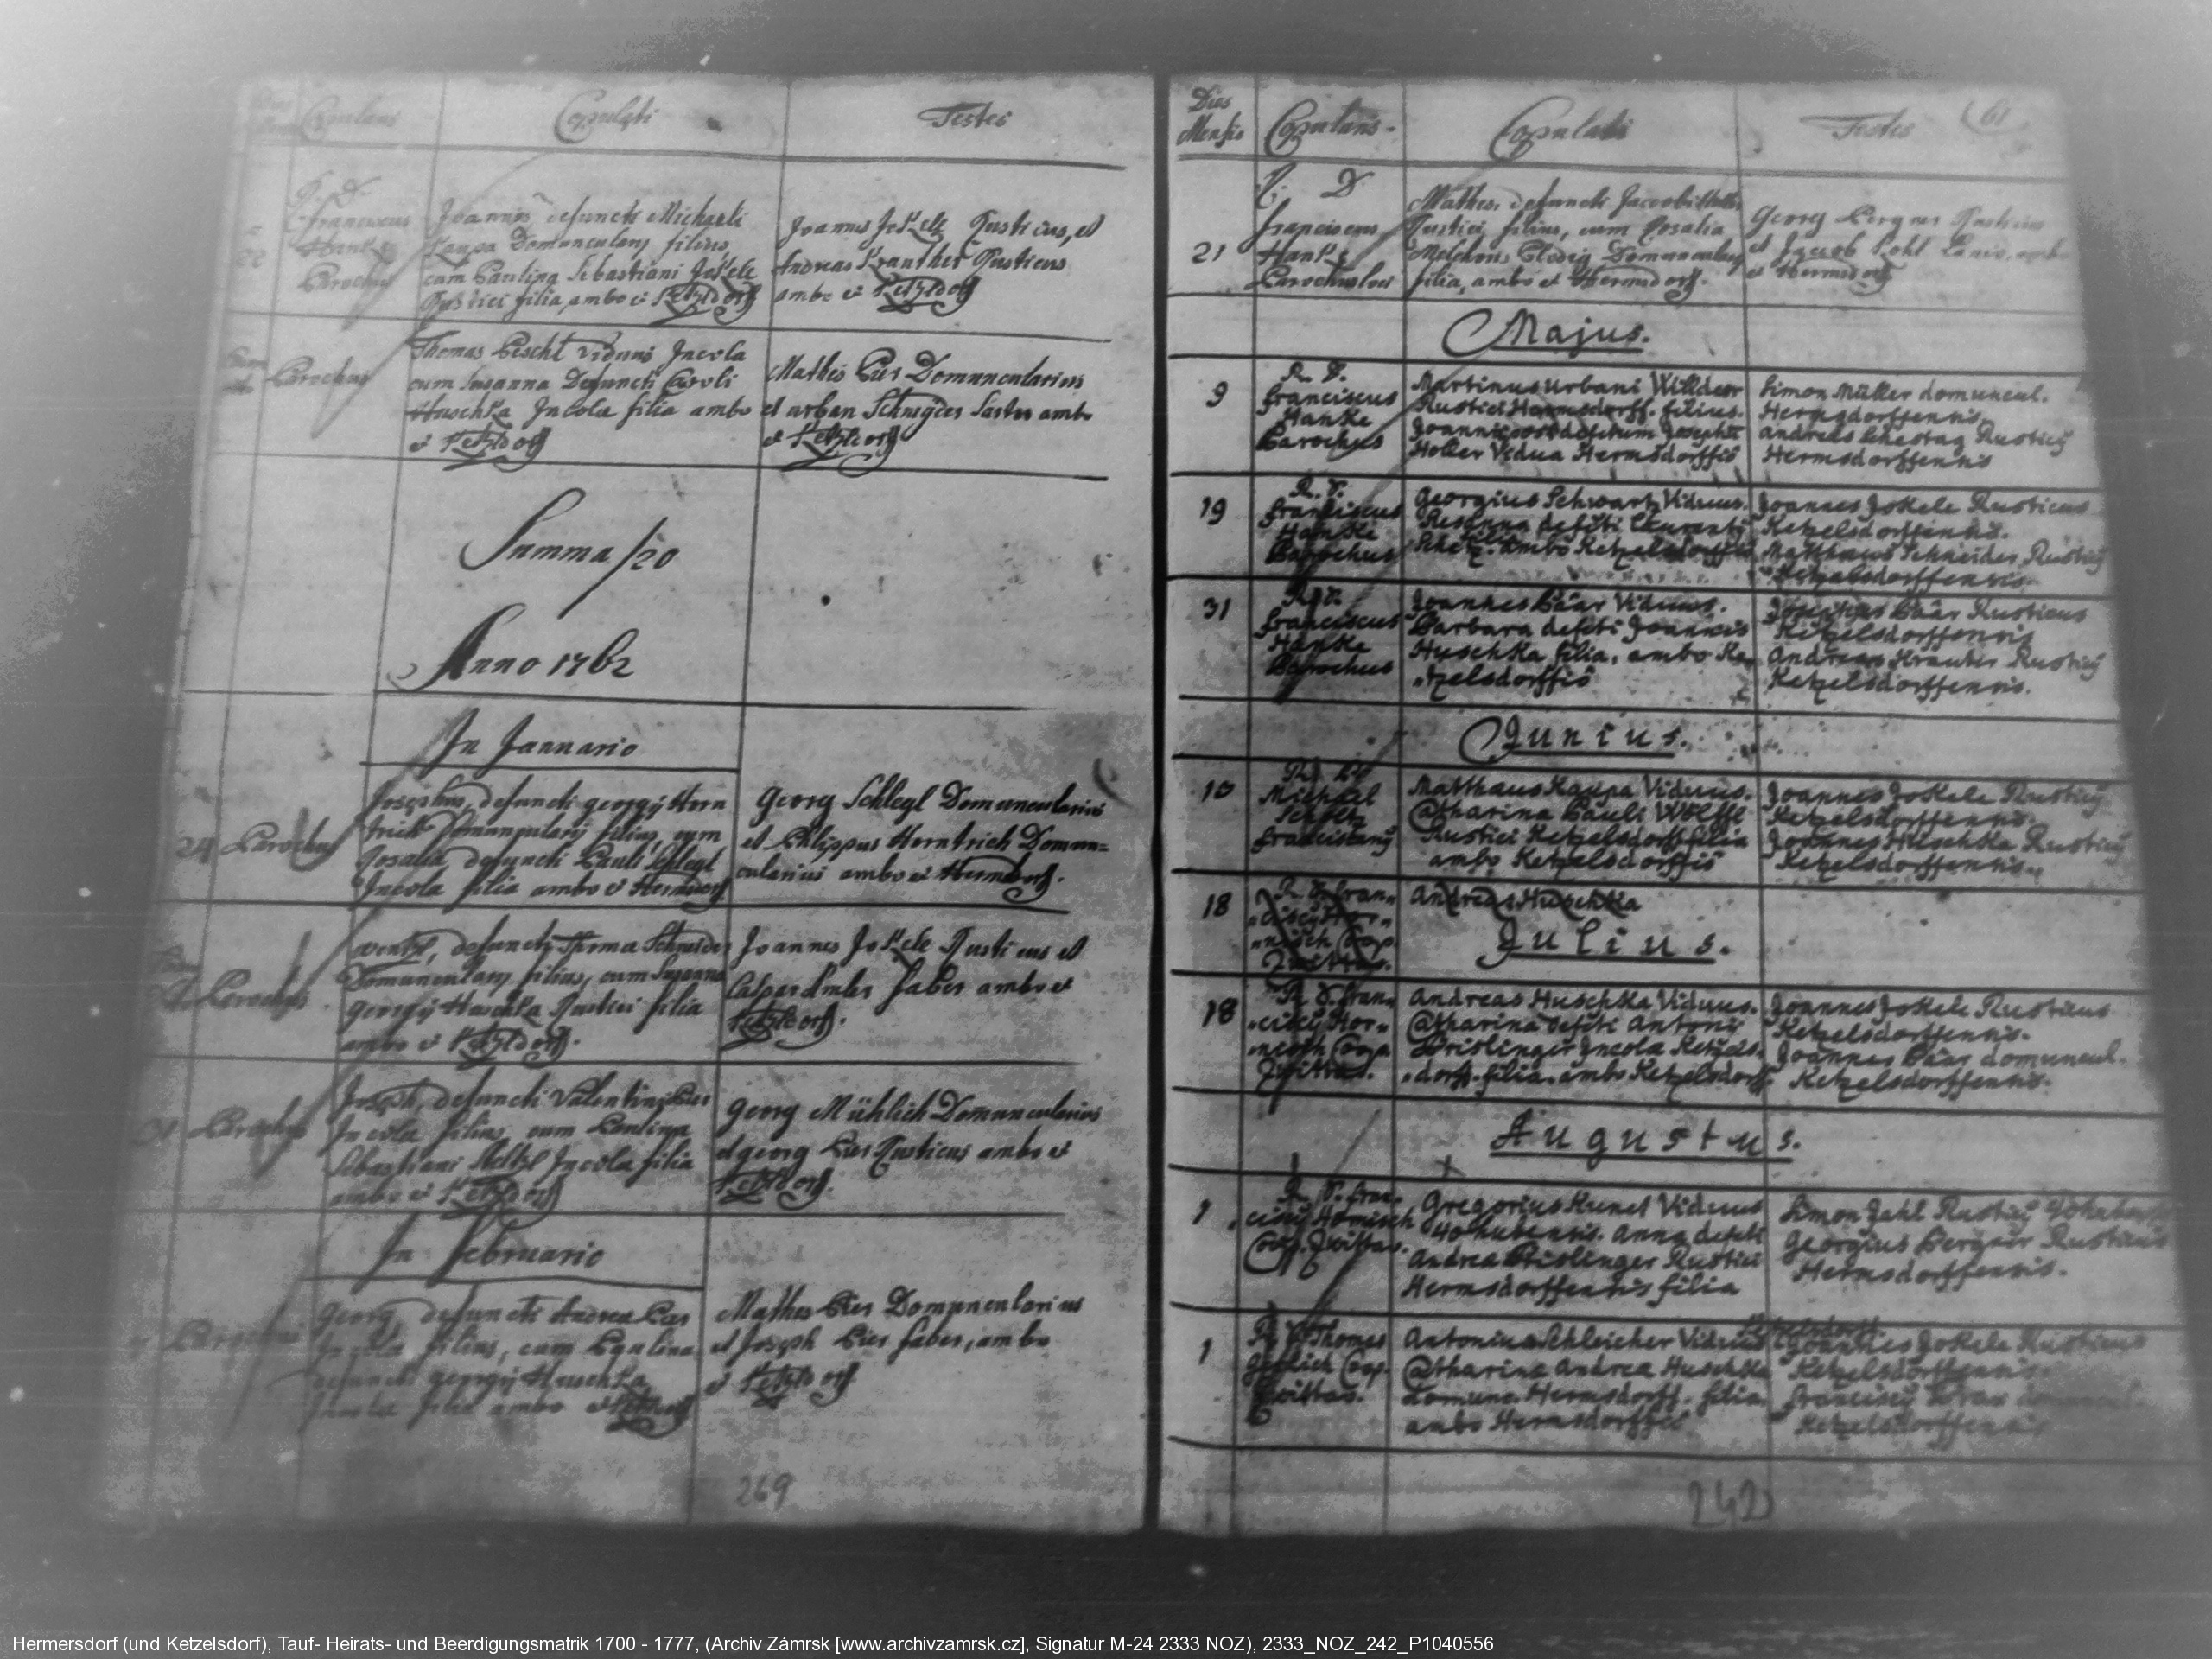 Copulans Copulati Testes
R. D.
Franciscus
Hanke
Parochus
22
Joannis defuncti Michaeli
Kaupa Domuncularij filius,
cum Paulina Sebastiani Jokele
Rustici filia, ambo ex Ketzldorff
Joannes Jokele Rusticus, et
Andreas Krauther Rusticus
ambo ex Ketzldorff
Parochus
Thomas Peschl viduus Incola
cum Susanna Defuncti Caroli
Huschka Incolae filia ambo
ex Ketzldorff
Mathes Pier Domuncularius
et urban Schneyder Sartor ambo
ex Ketzldorff
Summa / 20
Anno 1762
In Januario
24 Parochus
Josephus, defuncti georgij Horn
trich Domuncularij filius, cum
Rosalia, defuncti Pauli Schlegl
Incola filia ambo ex Hermsdorff
Georg Schlegl Domuncularius
et Philippus Horntrich Domun=
cularius ambo ex Hermsdorff.
Parochus
wentzl, defuncti Thoma Schneider
Domuncularij filius, cum Susanna
georgij Huschka Rustici filia
ambo ex Ketzldorff.
Joannes Jokele Rusticus et
Casper faber ambo ex
Ketzldorff.
31 Parochus
Joseph, defuncti Valentini Pier
Incola filius, cum Paulina
Sebastiani Incola filia
ambo ex Ketzldorff
georg Mühlich Domuncularius
et georg Pier Rusticus ambo ex
Ketzldorff.
In Februario
Parochus
Georg, defuncti Andrea
Incola filius, cum Paulina
defuncti georgij Huschka
Incola filia ambo ex Ketzldorff
Mathes Pier Domuncularius
et Joseph Pier faber, ambo
ex Ketzldorff
269
Dies
Mensis
Copulans. Copulati Testes 61
21
R. D.
Franciscus
Hanke
Parochus loci
Mathes, defuncti Jacobi
Rustici filius, cum Rosalia
Melchioris Domuncularij
filia, ambo ex Hermsdorff.
Georg Pergner Rusticus
et Jacob Pohl
ex Hermsdorff
Majus.
9
R. D.
Franciscus
Hanke
Parochus
Martinus Urbani Willdner
Rustici Hermsdorff. filius.
Joannis post defctum Josephi
Holler Vidua Hermsdorffio
Simon Müller domuncul.
Hermsdorffensis
andreas Rusticy
Hermsdorffensis
19
R. D.
Franciscus
Hanke
Parochus
Georgius Schwartz Viduus.
Rosanna defcti Laurentij
filia. ambo Ketzelsdorffio
Joannes Jokele Rusticus
Ketzelsdorffensis.
Matthaeus Schneider Rusticy
Ketzelsdorffensis.
31
R. D.
Franciscus
Hanke
Parochus
Joannes Päär Viduus.
Barbara defcti Joannis
Huschka filia, ambo Ke„
„tzelsdorffio
Josephus Päär Rusticus
Ketzelsdorffensis
Andreas Krauter Rusticy
Ketzelsdorffensis.
Junius.
10
R. D.
Michael
Scholtz
Franciscany
Matthaus Kaupa Viduus.
Catharina Pauli Wölffl
Rustici Ketzelsdorff filia
ambo Ketzelsdorffio
Joannes Jokele Rusticy
Ketzelsdorffensis.
Joannes Huschka Rusticy
Ketzelsdorffensis.
18
R. D. Fran„
„cisy Hor„
„nisch Cop.
Zwittav.
Andreas Huschka
Julius.
18
R. D. Fran„
„cisy Hor„
„nisch Coop
Zwittav.
Andreas Huschka Viduus.
Catharina defcti Antonij
Prislinger Incola Ketzels„
„dorff. filia. ambo Ketzelsdorff.
Joannes Jokele Rusticus
Ketzelsdorffensis.
Joannes Päär domuncul.
Ketzelsdorffensis.
Augustus.
1
R. D. Fran„
cisy Hornisch
Coop. Zwittav.
Gregorius Kunel Viduus
Anna defcti
Andrea Prislinger Rustici
Hermsdorffensis filia
Simon Jahl Rusticy
Georgius Pergner Rusticus
Hermsdorffensis.
1
R. D. Thomas
Coop.
Zwittav.
Antonius Schleicher Viduus
Catharina Andrea Huschka
Domunc. Hermsdorff. filia
ambo Hermsdorffio
Joannes Jokele Rusticus
Ketzelsdorffensis
Franciscy
Ketzelsdorffensis
242
Hermersdorf (und Ketzelsdorf), Tauf- Heirats- und Beerdigungsmatrik 1700 - 1777, (Archiv Zámrsk [www.archivzamrsk.cz], Signatur M-24 2333 NOZ), 2333_NOZ_242_P1040556